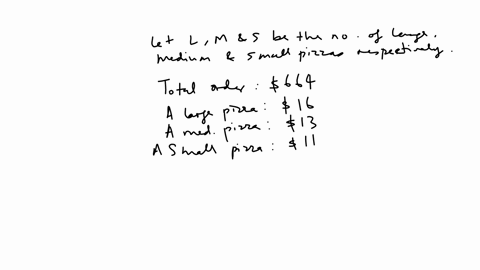 Let L, M & S be the no. of large,
medium & small pizzas respectively.
Total order: $664
A large pizza: $16
A med. pizza: $13
A Small pizza: $11